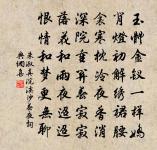 玉體金釵一樣嬌
背燈初解繡裙腰
衾寒枕冷夜香消
深院重關春寂寂
落花和雨夜迢迢
恨情和夢更無聊
朱淑真浣溪沙春夜詞